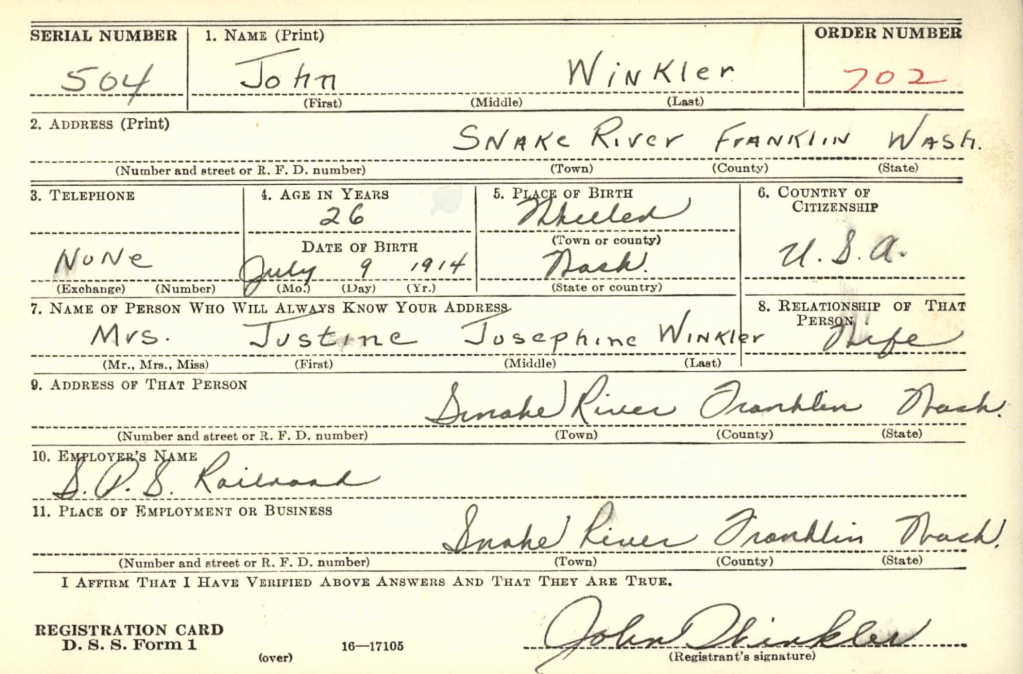 SERIAL NUMBER 1. NAME (Print) ORDER NUMBER
504 John Winkler 702
(First) (Middle) (Last)
2. ADDRESS (Print)
Snake River Franklin Wash.
(Number and street or R. F. D. number) (Town) (County) (State)
3. TELEPHONE 4. AGE IN YEARS 5. PLACE OF BIRTH 6. COUNTRY OF CITIZENSHIP
26
DATE OF BIRTH (Town or county)
None July 9 1914 Wash. U.S.A.
(Exchange) (Number) (Mo.) (Day) (Yr.) (State or country)
7. NAME OF PERSON WHO WILL ALWAYS KNOW YOUR ADDRESS 8. RELATIONSHIP OF THAT PERSON
Mrs. Justine Josephine Winkler Wife
(Mr., Mrs., Miss) (First) (Middle) (Last)
9. ADDRESS OF THAT PERSON
Snake River Franklin Wash.
(Number and street or R. F. D. number) (Town) (County) (State)
10. EMPLOYER'S NAME
S.P.S. Railroad
11. PLACE OF EMPLOYMENT OR BUSINESS
Snake River Franklin Wash.
(Number and street or R. F. D. number) (Town) (County) (State)
I AFFIRM THAT I HAVE VERIFIED ABOVE ANSWERS AND THAT THEY ARE TRUE.
REGISTRATION CARD
D. S. S. Form 1 16—17105 John Winkler
(over) (Registrant's signature)